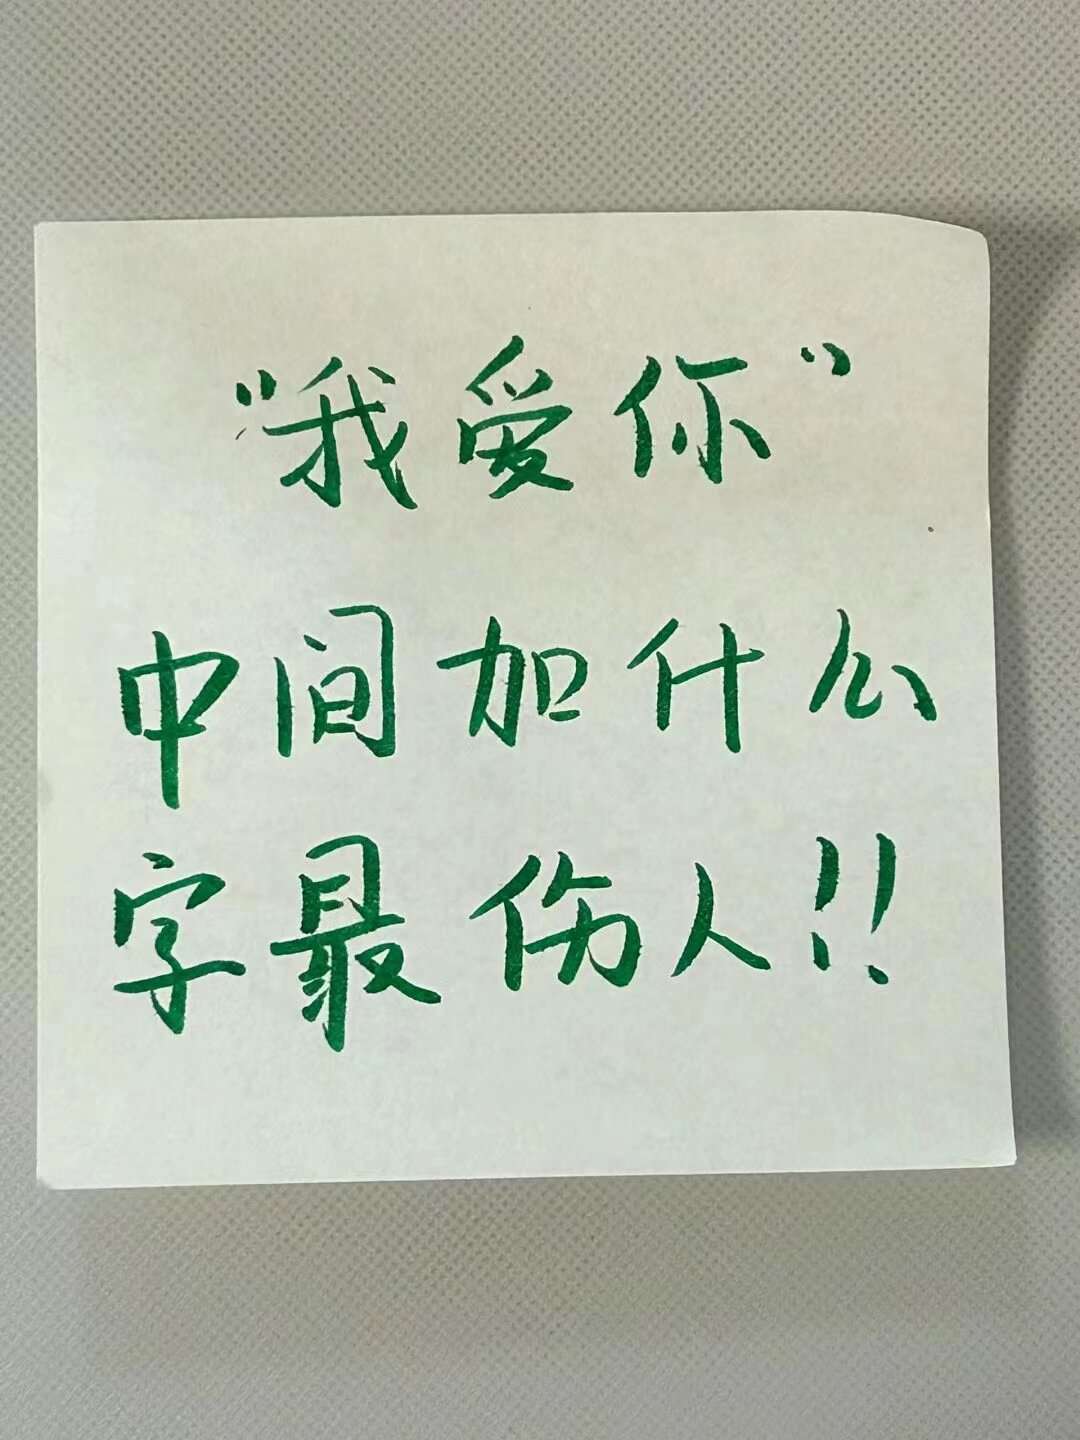 “我爱你”
中间加什么
字最伤人!!